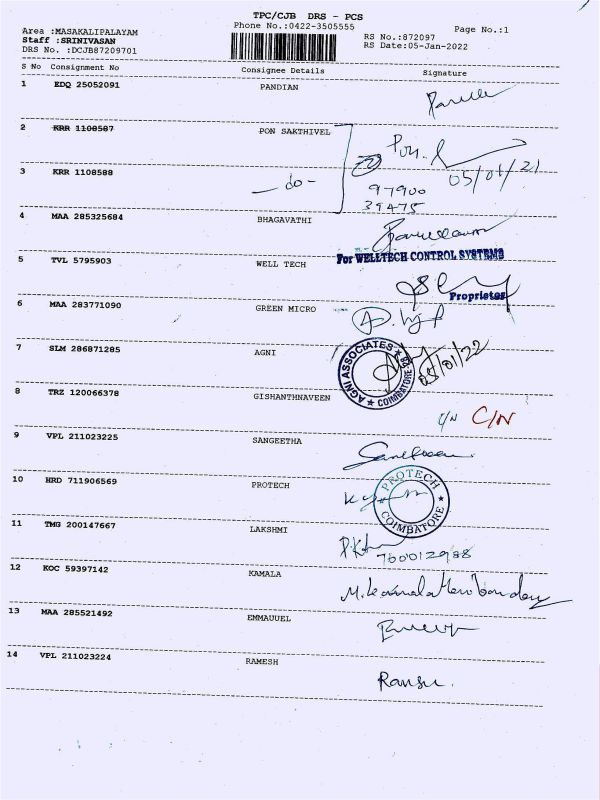 TPC/CJB DRS - PCS
Phone No.:0422-3505555
Page No.:1
Area :MASAKALIPALAYAM
Staff :SRINIVASAN
DRS No. :DCJB87209701
RS No.:872097
RS Date:05-Jan-2022
S No Consignment No Consignee Details Signature
1 EDQ 25052091 PANDIAN
2 KRR 1108587 PON SAKTHIVEL Pon.
05/01/21
3 KRR 1108588 -do- 97900
39475
4 MAA 285325684 BHAGAVATHI
For WELLTECH CONTROL SYSTEMS
5 TVL 5795903 WELL TECH
Proprietor
6 MAA 283771090 GREEN MICRO
7 SLM 286871285 AGNI AGNI ASSOCIATES COIMBATORE 05/01/22
8 TRZ 120066378 GISHANTHNAVEEN C/N C/N
9 VPL 211023225 SANGEETHA
10 HRD 711906569 PROTECH PROTECH COIMBATORE
11 TMG 200147667 LAKSHMI
12 KOC 59397142 KAMALA
13 MAA 285521492 EMMAUUEL
14 VPL 211023224 RAMESH